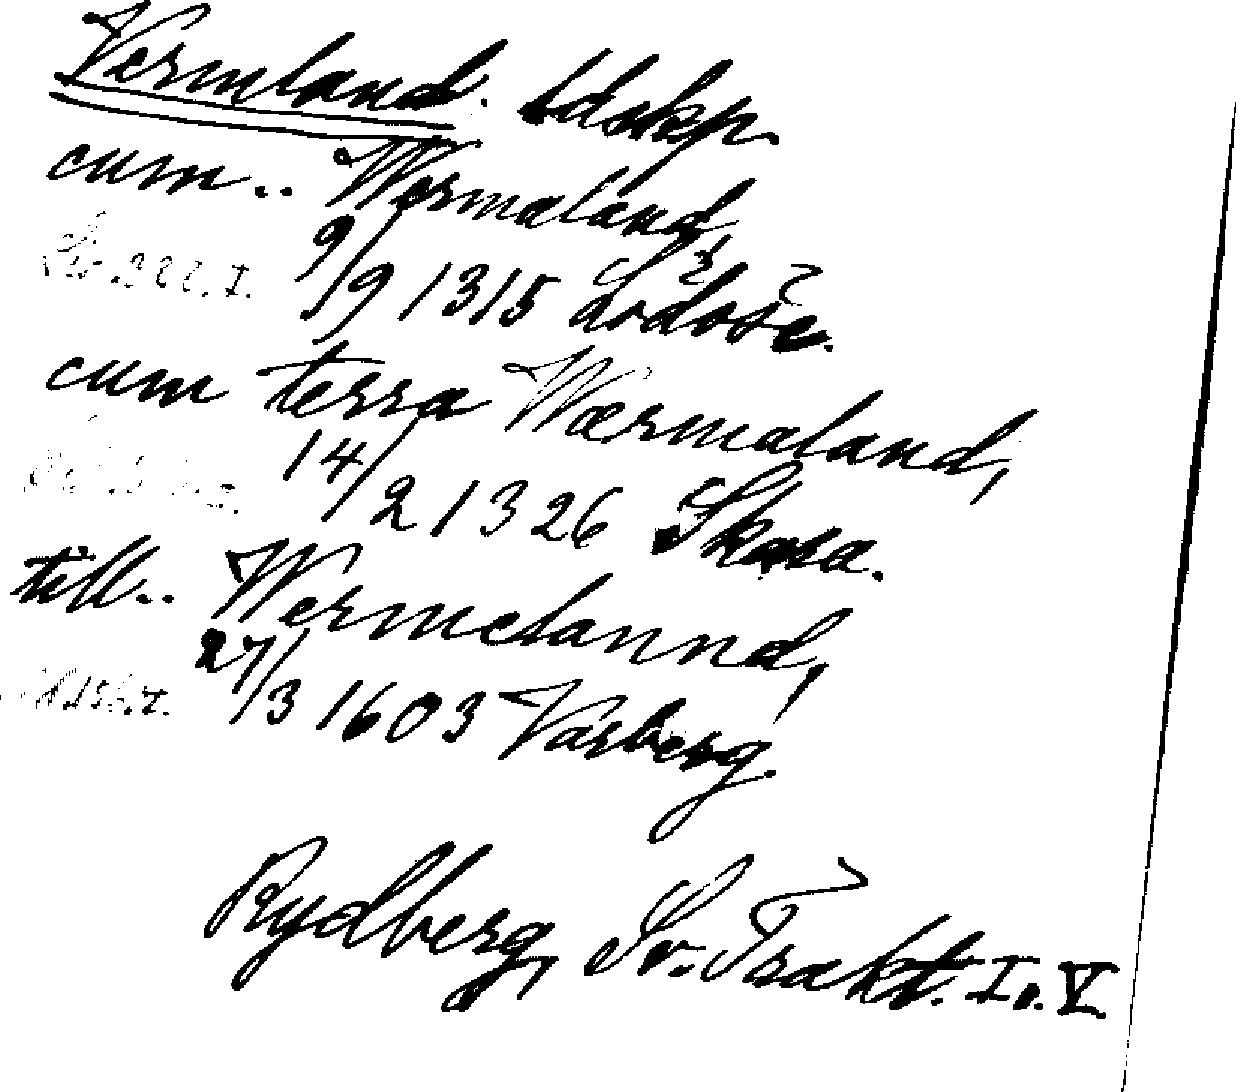 Vermland. ldskp.
cum.. Wermaland,
9/9 1315 Lödöse.
cum terra Wærmaland,
14/2 1326 Skara.
till.. Wermelannd,
27/3 1603 Varberg
Rydberg, Sv. Trakt. I o. V